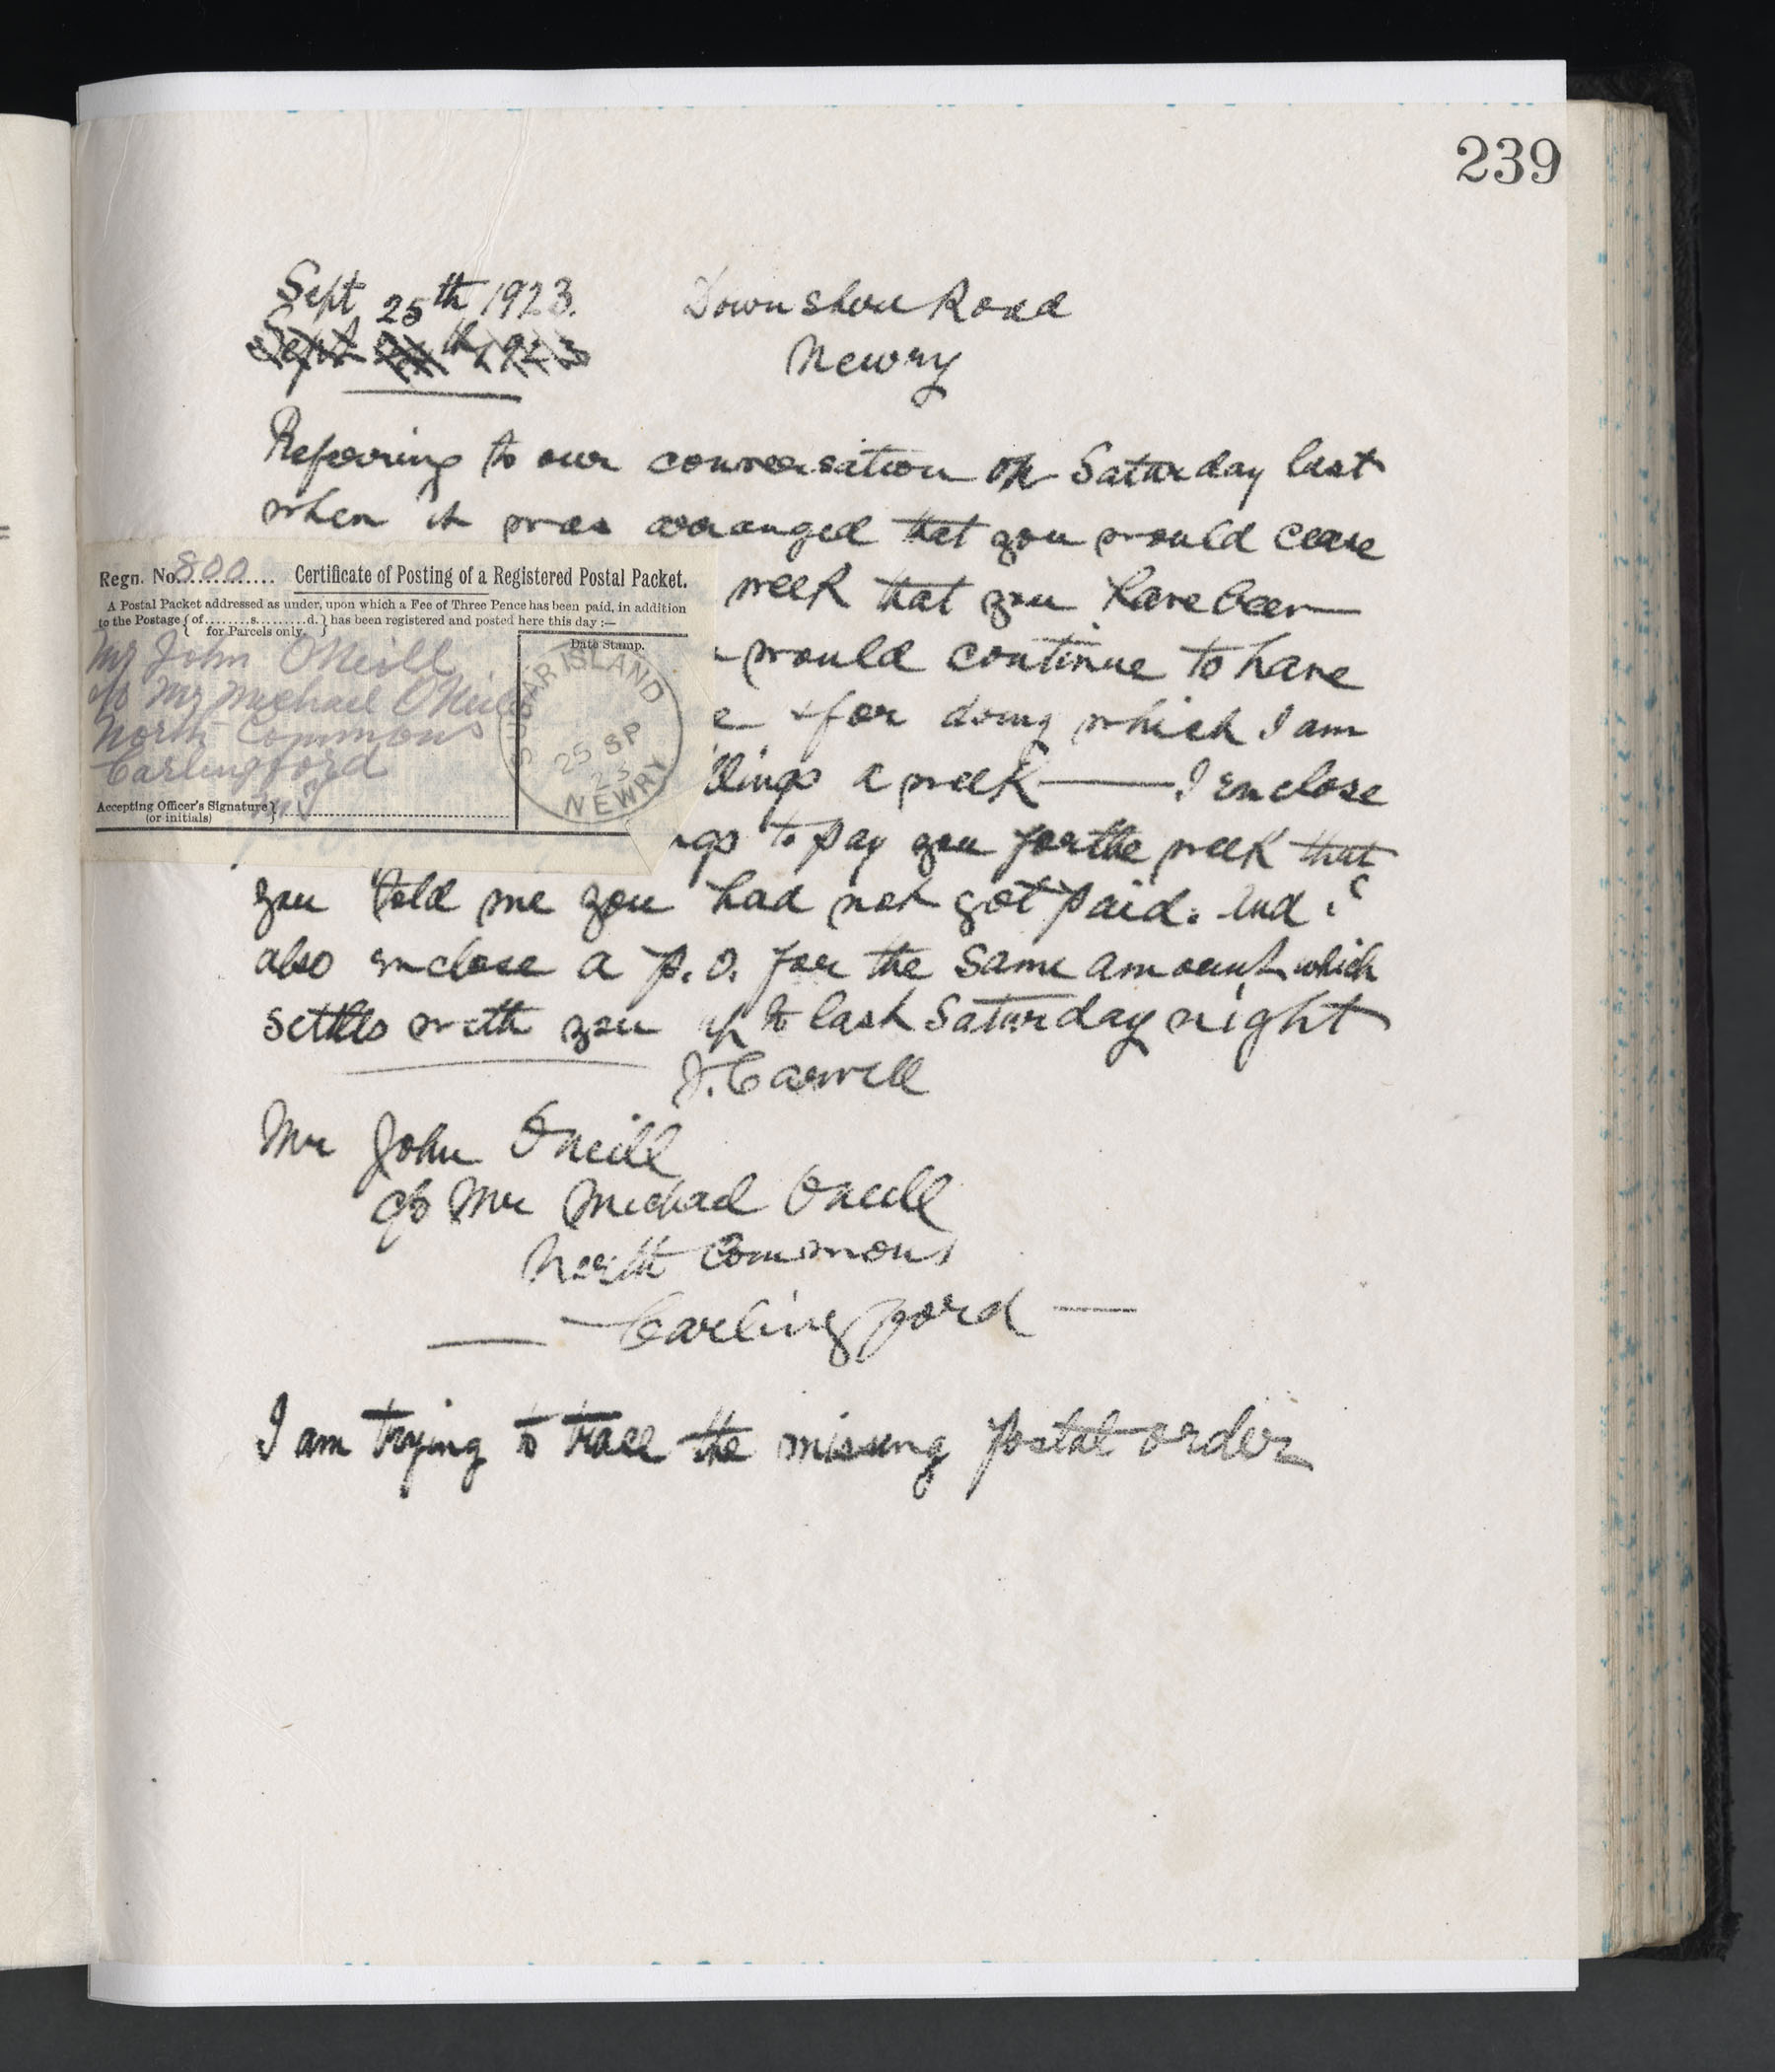 239
Sept 25th 1923. Downshire Road
Sept th 1923 Newry
Referring to our conversation on Saturday last
when it was arranged that you would cease
week that you have been
would continue to have
e & for doing which I am
llings a week — I enclose
ngs to pay you for the week that
you told me you had not got paid. And I
also enclose a P.O. for the same amount which
settles with you up to last Saturday night
J. Carvill
Mr John O'Neill
c/o Mr Michael O'Neill
North Commons
— Carlingford —
I am trying to trace the missing postal order
Regn. No. 800 Certificate of Posting of a Registered Postal Packet.
A Postal Packet addressed as under, upon which a Fee of Three Pence has been paid, in addition
to the Postage { of........s.........d. } has been registered and posted here this day :—
for Parcels only.
Date Stamp.
Mr John ONeill
c/o Mr Michael ONeill
North Commons
Carlingford
Accepting Officer's Signature }
(or initials)
SUGAR ISLAND
25 SP
23
NEWRY